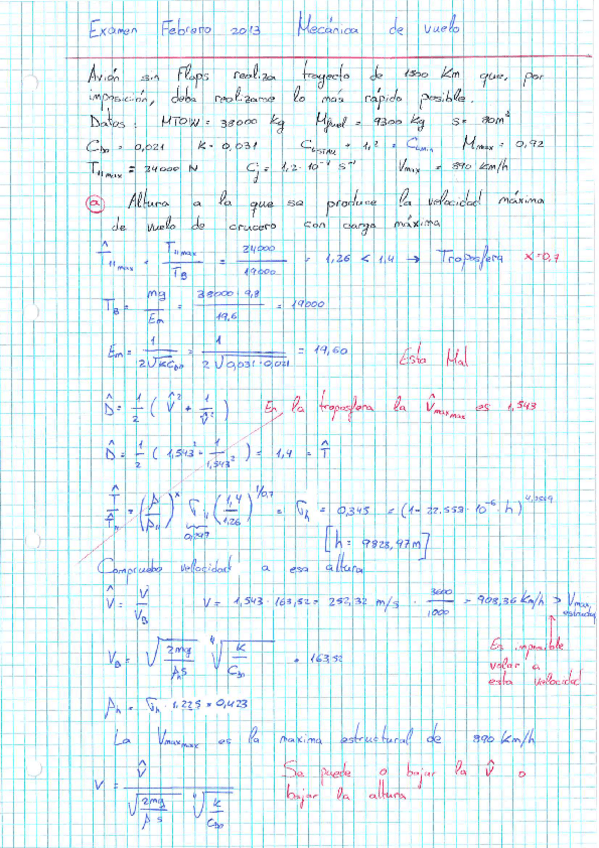 Examen Febrero 2013 Mecánica de vuelo
Avión sin Flaps realiza trayecto de 1500 Km que, por
imposición, debe realizarse lo más rápido posible.
Datos: MTOW = 38000 kg Mfuel = 9300 kg S = 90 m²
C_D0 = 0,021 K = 0,031 = 1,2 = M_max = 0,92
T_11max = 24000 N C_j = 1,2·10⁻⁴ s⁻¹ V_max = 890 km/h
a) Altura a la que se produce la velocidad máxima
de vuelo de crucero con carga máxima
T̂_11max = T_11max / T_B = 24000 / 19000 = 1,26 < 1,4 → Troposfera x=0,7
T_B = mg / E_m = 38000·9,8 / 19,6 = 19000
E_m = 1 / 2√(K C_D0) = 1 / 2√(0,031·0,021) = 19,60 Esta Mal
D̂ = 1/2 (V̂² + 1/V̂²) En la troposfera la V̂_maxmax es 1,543
D̂ = 1/2 (1,543² + 1/1,543²) = 1,4 = T̂
σ_11 (1,4/1,26)^1/0,7 = σ_h = 0,345 = (1 - 22,558·10⁻⁶·h)
[h = 9823,97 m]
Comprueba velocidad a esa altura
V̂ = V / V_B V = 1,543·163,52 = 252,32 m/s · 3600/1000 = 908,36 Km/h > V_max
V_B = √(2mg / ρ_h S) ⁴√(K / C_D0) = 163,52
Es imposible
volar a
esta velocidad
ρ_h = σ_h · 1,225 = 0,423
La V_maxmax es la maxima estructural de 890 Km/h
V = V̂ / √(2mg / ρ S) ⁴√(K / C_D0)
Se puede o bajar la V̂ o
bajar la altura